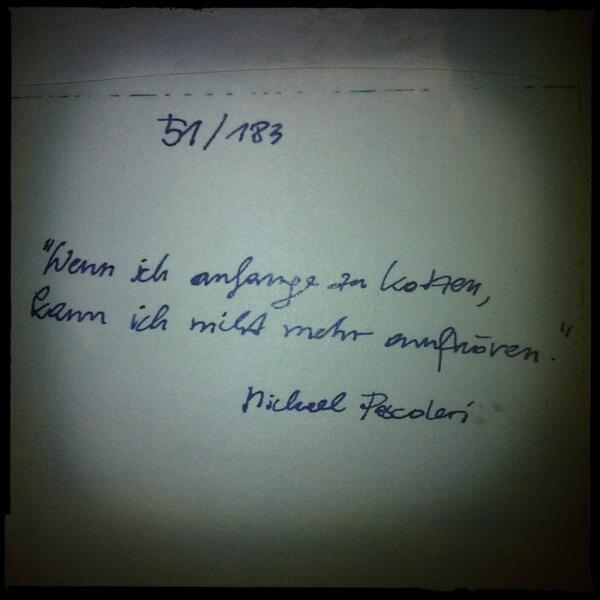 51/183
"Wenn ich anfange zu kotzen,
kann ich nicht mehr aufhören."
Michael Pescoleri